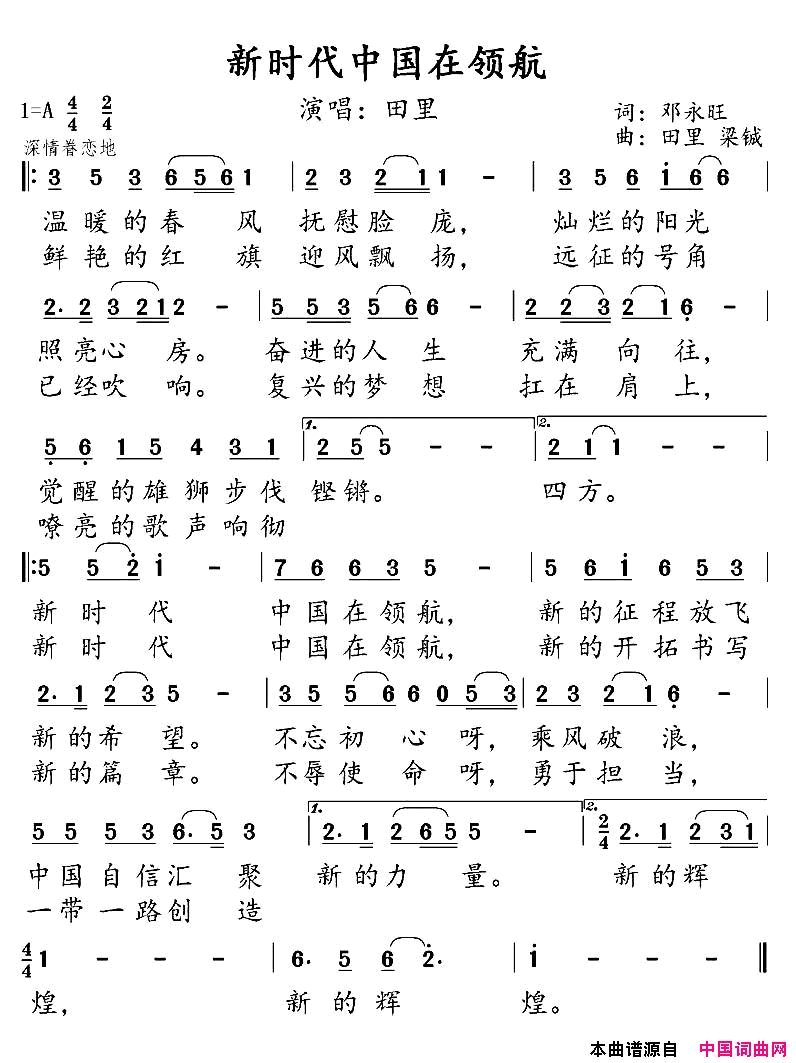 新时代中国在领航
1=A 4/4 2/4 演唱：田里 词：邓永旺
深情眷恋地 曲：田里 梁铖
‖: 3 5 3 6561 | 2 3 2 11 - | 3 5 6 i 6 6 |
温暖的春 风 抚慰脸 庞， 灿烂的阳光
鲜艳的红 旗 迎风飘 扬， 远征的号角
2. 2 3 212 - | 5 5 3 5 66 - | 2 2 3 2 1 6 - |
照亮心 房。 奋进的人 生 充满 向 往，
已经吹 响。 复兴的梦 想 扛在 肩 上，
5 6 1 5 4 3 1 | 1. 2 5 5 - - | 2. 2 1 1 - - |
觉醒的雄狮步伐 铿锵。 四方。
嘹亮的歌声响彻
‖: 5 5 2 i - | 7 6 6 3 5 - | 5 6 i 6 5 3 |
新 时 代 中国在领航， 新的征程放飞
新 时 代 中国在领航， 新的开拓书写
2. 1 2 3 5 - | 3 5 5 6 6 0 5 3 | 2 3 2 1 6 - |
新的希 望。 不忘初 心 呀， 乘风破 浪，
新的篇 章。 不辱使 命 呀， 勇于担 当，
5 5 5 3 6. 5 3 | 1. 2. 1 2 65 5 - | 2. 2/4 2. 1 2 31 |
中国自信汇 聚 新的力 量。 新的辉
一带一路创 造
4/4 1 - - - | 6. 5 6 2. | i - - - ‖
煌， 新 的 辉 煌。
本曲谱源自 中国词曲网